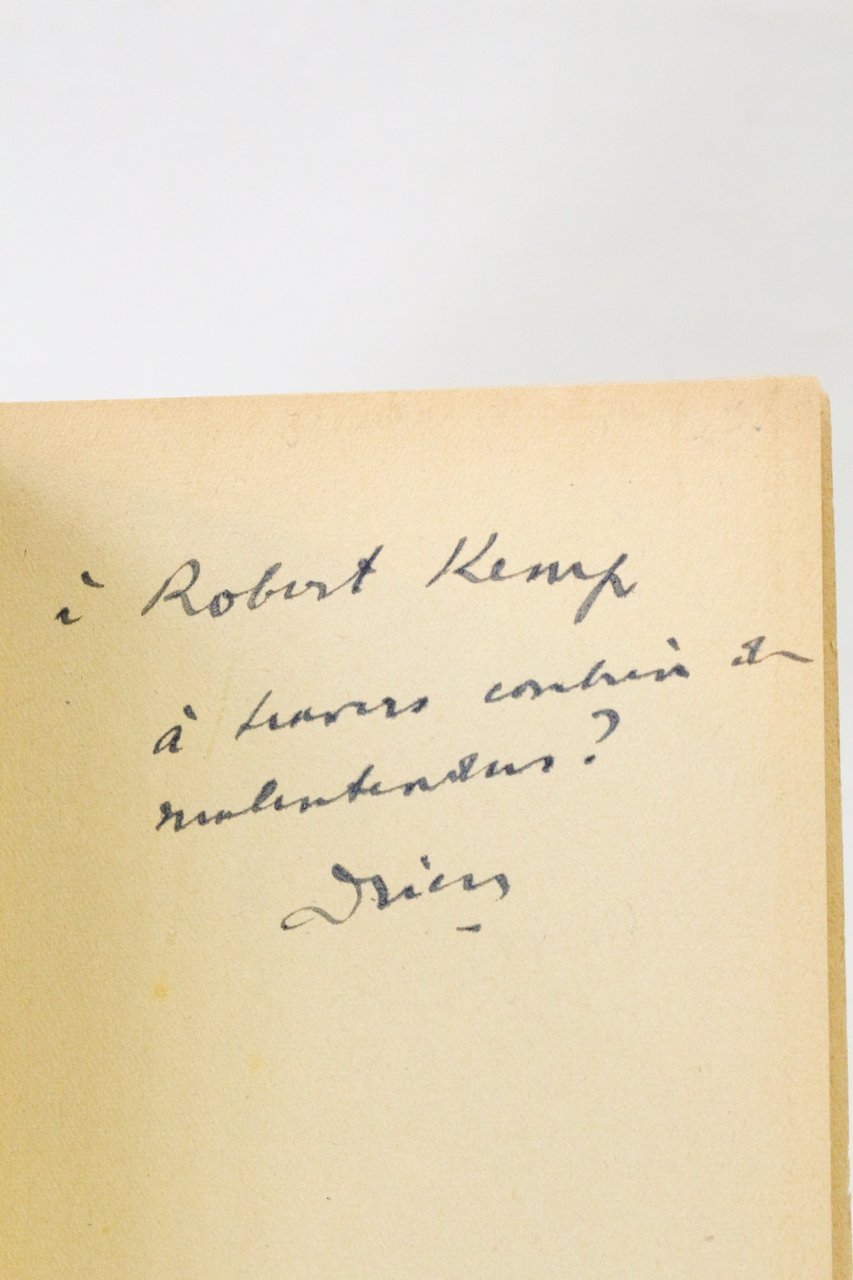 à Robert Kemp
à travers combien de
malentendus?
Drieu